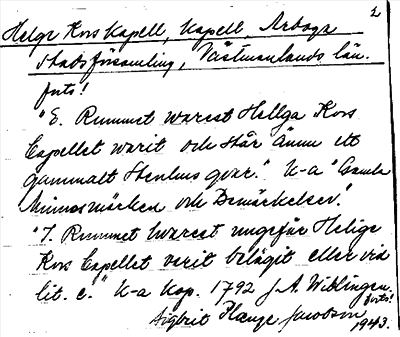 2
Helge Kors Kapell, Kapell, Arboga
stadsförsamling, Västmanlands län.
forts!
"E. Rummet warest Hellga Kors
Capellet warit och står ännu ett
gammalt Stenhus qvar." U-a "Gamla
Minnesmärken och Demärkelser."
"7. Rummet hwarest ungefär Helige
Kors Capellet varit belägit eller vid
lit. e." U-a Kop. 1792 J. A. Wiblingen.
forts!
Sigbrit Plænge Jacobson
1943.